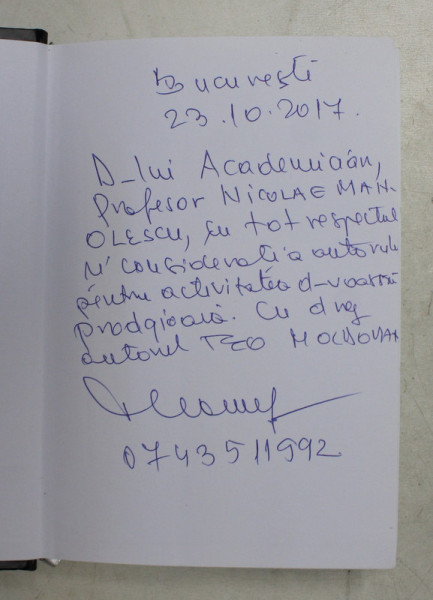 București
23.10.2017.
D-lui Academician,
Profesor NICOLAE MAN-
OLESCU, cu tot respectul
și considerația autorului
pentru activitatea d-voastră
prodgioasă. Cu drag
autorul TEO MOLDOVAN
0743511992